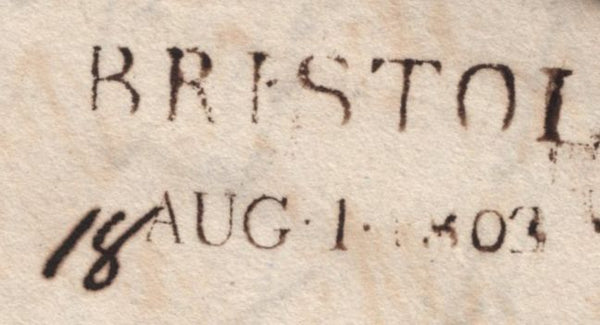 BRISTOL
18 AUG·1·1803